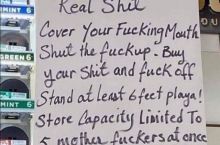 Real Shit
Cover Your Fucking Mouth
Shut the fuckup. Buy
your Shit and fuck off
Stand at least 6 feet playa!
Store Capacity Limited To
5 mother fuckers at once
MINT 6
MINT 6